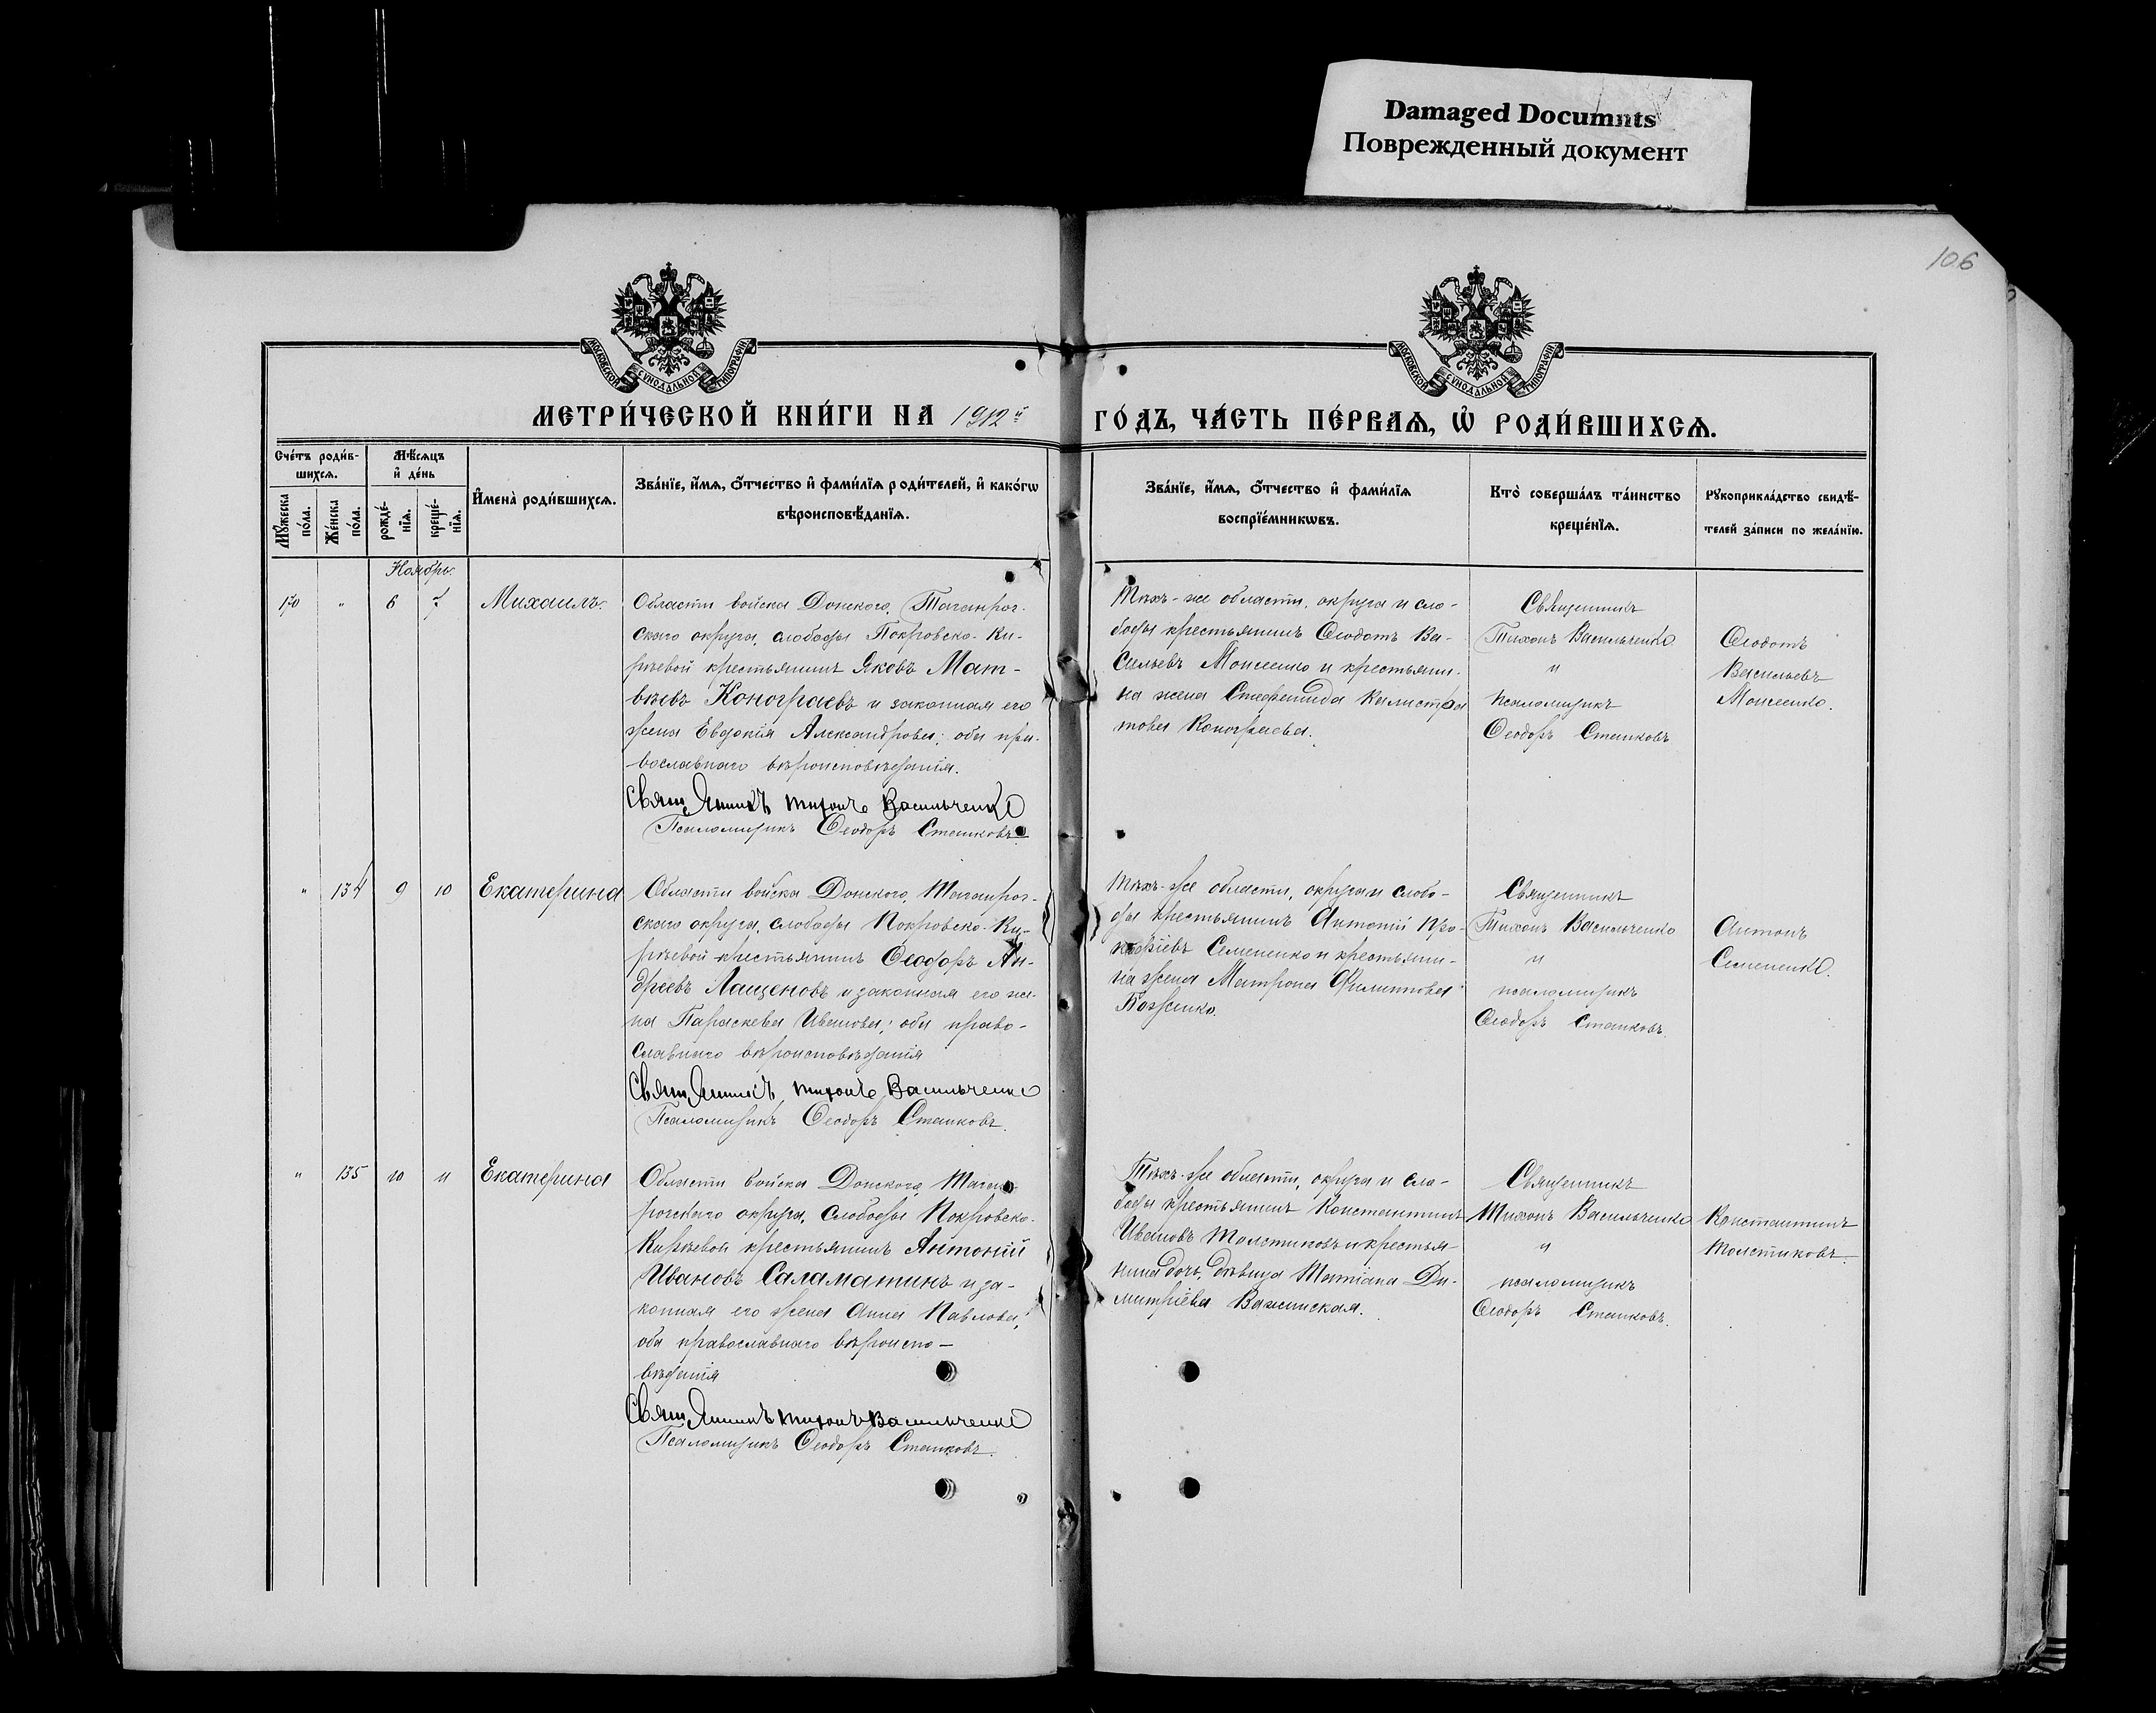 Damaged Documnts
Поврежденный документ
106
МОСКОВСКОЙ СѴНОДАЛЬНОЙ ТИПОГРАФІИ
МОСКОВСКОЙ СѴНОДАЛЬНОЙ ТИПОГРАФІИ
МЕТРИ́ЧЕСКОЙ КНИ́ГИ НА 1912й ГО́ДЪ, ЧА́СТЬ ПЕ́РВАѦ, Ѡ҆ РОДИ́ВШИХСѦ.
Сче́тъ роди́в-
шихсѧ.
Мꙋ́жеска по́ла.
Же́нска по́ла.
Мѣ́сѧцъ
и҆ де́нь
рожде́-
нїѧ.
креще́-
нїѧ.
И҆мена̀ роди́вшихсѧ.
Зва́нїе, и҆́мѧ, ѻ҆́тчество и҆ фами́лїѧ роди́телей, и҆ како́гѡ
вѣроисповѣ́данїѧ.
Зва́нїе, и҆́мѧ, ѻ҆́тчество и҆ фами́лїѧ
воспрїе́мникѡвъ.
Кто̀ соверша́лъ та́инство
креще́нїѧ.
Рꙋкоприкла́дство свидѣ́-
телей за́писи по жела́нїю.
Ноябрь.
130 " 6 7 Михаилъ.
Области войска Донского, Таганрог-
скаго округа, слободы Покровско-Ки-
рѣевой крестьянинъ Яковъ Мат-
вѣевъ Конограевъ и законная его
жена Евдокія Александрова; оба пра-
вославнаго вѣроисповѣданія.
Священникъ Тихонъ Васильченко
Псаломщикъ Ѳеодоръ Сташковъ
Тѣхъ-же области, округа и сло-
боды крестьянинъ Ѳеодотъ Ва-
сильевъ Моисеенко и крестьяни-
на жена Стефанида Калистра
това Конограева.
Священникъ
Тихонъ Васильченко
и
псаломщикъ
Ѳеодоръ Сташковъ
Ѳеодотъ
Васильевъ
Моисеенко.
" 134 9 10 Екатерина
Области войска Донского, Таганрог-
скаго округа, слободы Покровско-Ки-
рѣевой крестьянинъ Ѳеодоръ Ан-
дреевъ Лащеновъ и законная его же-
на Параскева Иванова; оба право-
славнаго вѣроисповѣданія
Священникъ Тихонъ Васильченко
Псаломщикъ Ѳеодоръ Сташковъ.
Тѣхъ-же области, округа и слобо-
ды крестьянинъ Антоній Про-
кофіевъ Семененко и крестьяни-
на жена Матрона Филиппова
Боженко.
Священникъ
Тихонъ Васильченко
и
псаломщикъ
Ѳеодоръ Сташковъ
Антонъ
Семененко.
" 135 10 11 Екатерина
Области войска Донского, Таган
рогскаго округа, слободы Покровско-
Кирѣевой крестьянинъ Антоній
Ивановъ Саламатинъ и за-
конная его жена Анна Павлова;
оба православнаго вѣроиспо-
вѣданія
Священникъ Тихонъ Васильченко
Псаломщикъ Ѳеодоръ Сташковъ.
Тѣхъ-же области, округа и сло-
боды крестьянинъ Константинъ
Ивановъ Толстиковъ и крестья-
нина дочь, дѣвица Татіана Ди-
митріева Важинская.
Священникъ
Тихонъ Васильченко
и
псаломщикъ
Ѳеодоръ Сташковъ.
Константинъ
Толстиковъ.